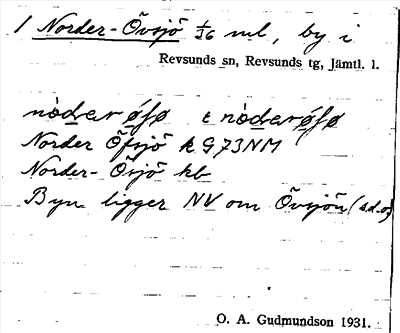 1 Norder-Övsjö 1/36 ml, by i
Revsunds sn, Revsunds tg, Jämtl. l.
nòdər øʃø ɛ nòdərøʃø
Norder Öfsjö k G73NM
Norder-Ösjö kb
Byn ligger NV om Övsjön (s.d.o)
O. A. Gudmundson 1931.